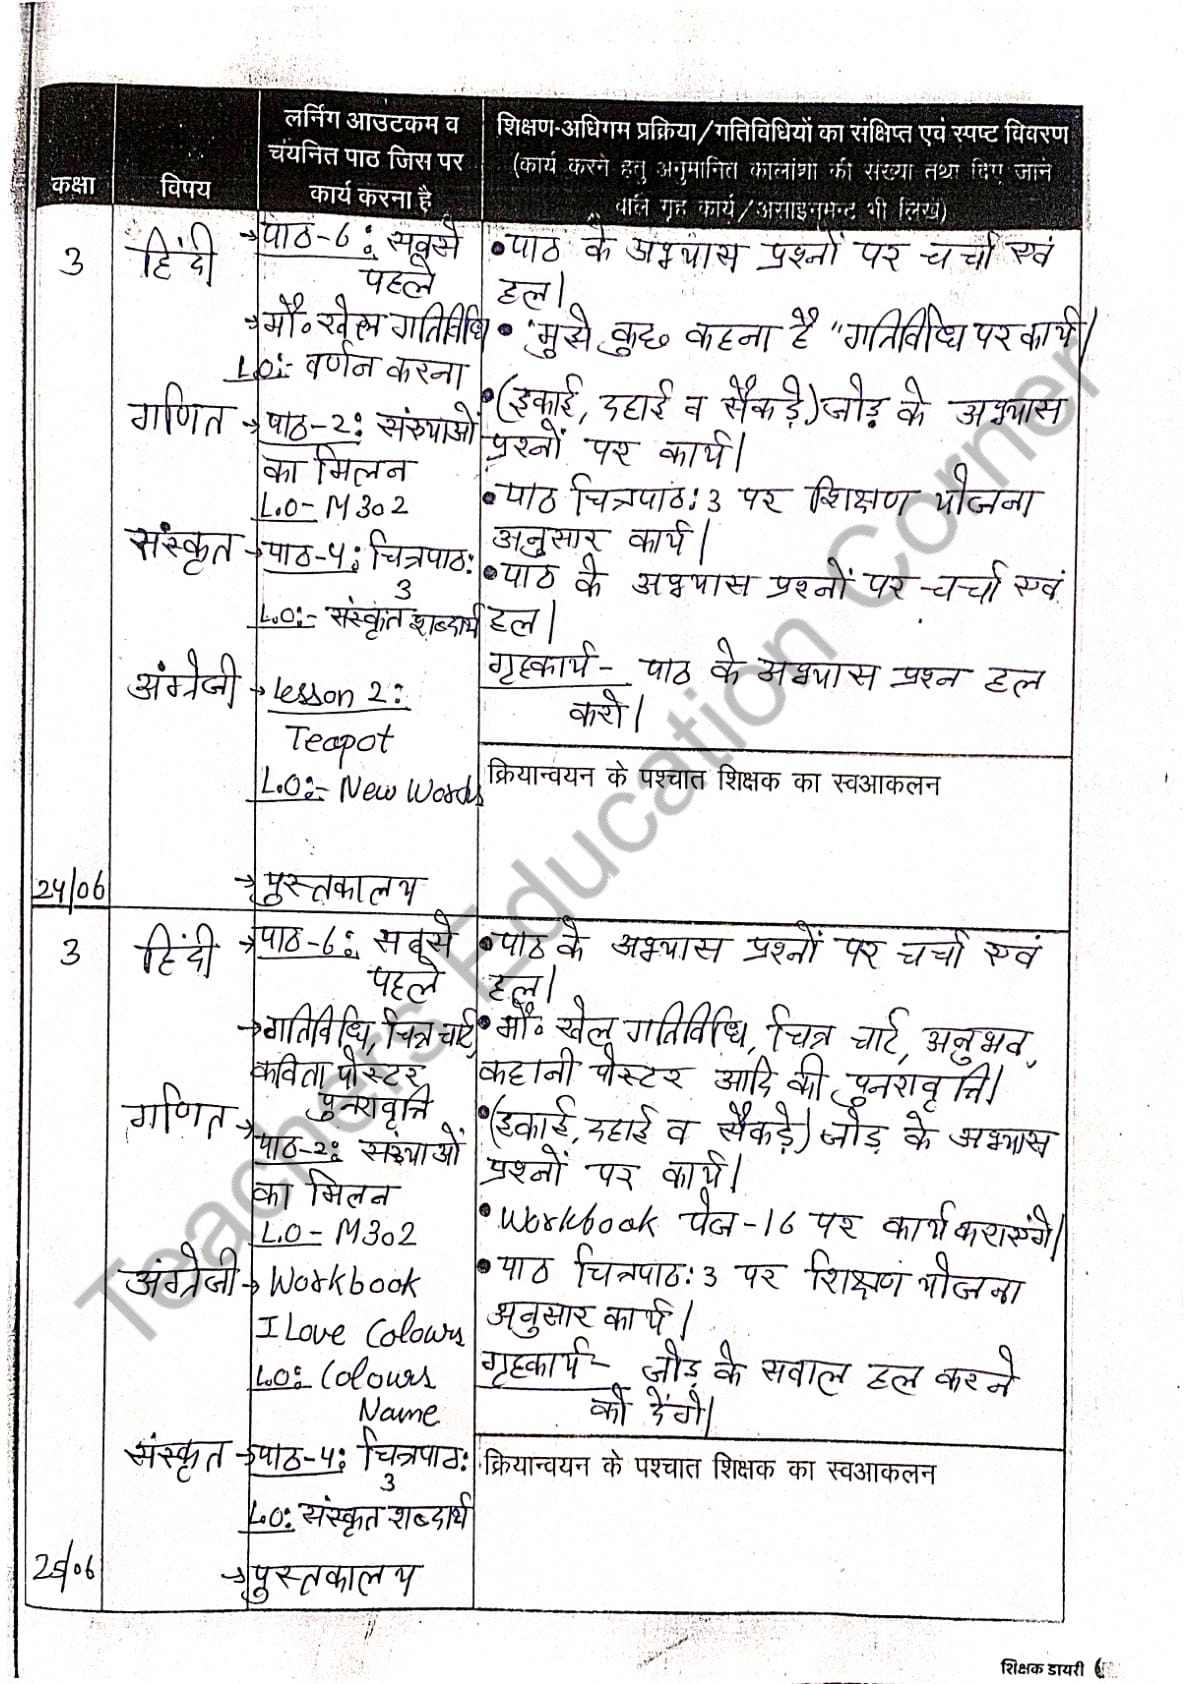 कक्षा
विषय
लर्निंग आउटकम व
चयनित पाठ जिस पर
कार्य करना है
शिक्षण-अधिगम प्रक्रिया/गतिविधियों का संक्षिप्त एवं स्पष्ट विवरण
(कार्य करने हेतु अनुमानित कालांशों की संख्या तथा दिए जाने
वाले गृह कार्य/असाइनमेन्ट भी लिखें)
3
हिंदी
→पाठ-6: सबसे
पहले
→मौ॰ खेल गतिविधि
L.O:- वर्णन करना
गणित
→पाठ-2: संख्याओं
का मिलन
L.O- M302
संस्कृत
→पाठ-4: चित्रपाठ:
3
L.O:- संस्कृत शब्दार्थ
अंग्रेजी
→Lesson 2:
Teapot
L.O:- New Words
→पुस्तकालय
24/06
•पाठ के अभ्यास प्रश्नों पर चर्चा एवं
हल।
• "मुझे कुछ कहना है "गतिविधि पर कार्य।
•(इकाई, दहाई व सैकड़े) जोड़ के अभ्यास
प्रश्नों पर कार्य।
•पाठ चित्रपाठ: 3 पर शिक्षण योजना
अनुसार कार्य।
•पाठ के अभ्यास प्रश्नों पर चर्चा एवं
हल।
गृहकार्य- पाठ के अभ्यास प्रश्न हल
करो।
क्रियान्वयन के पश्चात शिक्षक का स्वआकलन
3
हिंदी
→पाठ-6: सबसे
पहले
→गतिविधि, चित्र चार्ट,
कविता पोस्टर
पुनरावृत्ति
गणित→
पाठ-2: संख्याओं
का मिलन
L.O- M302
अंग्रेजी
→Workbook
I Love Colours
L.O: Colours
Name
संस्कृत
→पाठ-4: चित्रपाठ:
3
L.O: संस्कृत शब्दार्थ
→पुस्तकालय
25/06
•पाठ के अभ्यास प्रश्नों पर चर्चा एवं
हल।
•मौ॰ खेल गतिविधि, चित्र चार्ट, अनुभव,
कहानी पोस्टर आदि की पुनरावृत्ति।
•(इकाई, दहाई व सैकड़े) जोड़ के अभ्यास
प्रश्नों पर कार्य।
•Workbook पेज-16 पर कार्य कराएंगे।
•पाठ चित्रपाठ: 3 पर शिक्षण योजना
अनुसार कार्य।
गृहकार्य- जोड़ के सवाल हल करने
को देंगे।
क्रियान्वयन के पश्चात शिक्षक का स्वआकलन
Teachers Education Corner
शिक्षक डायरी